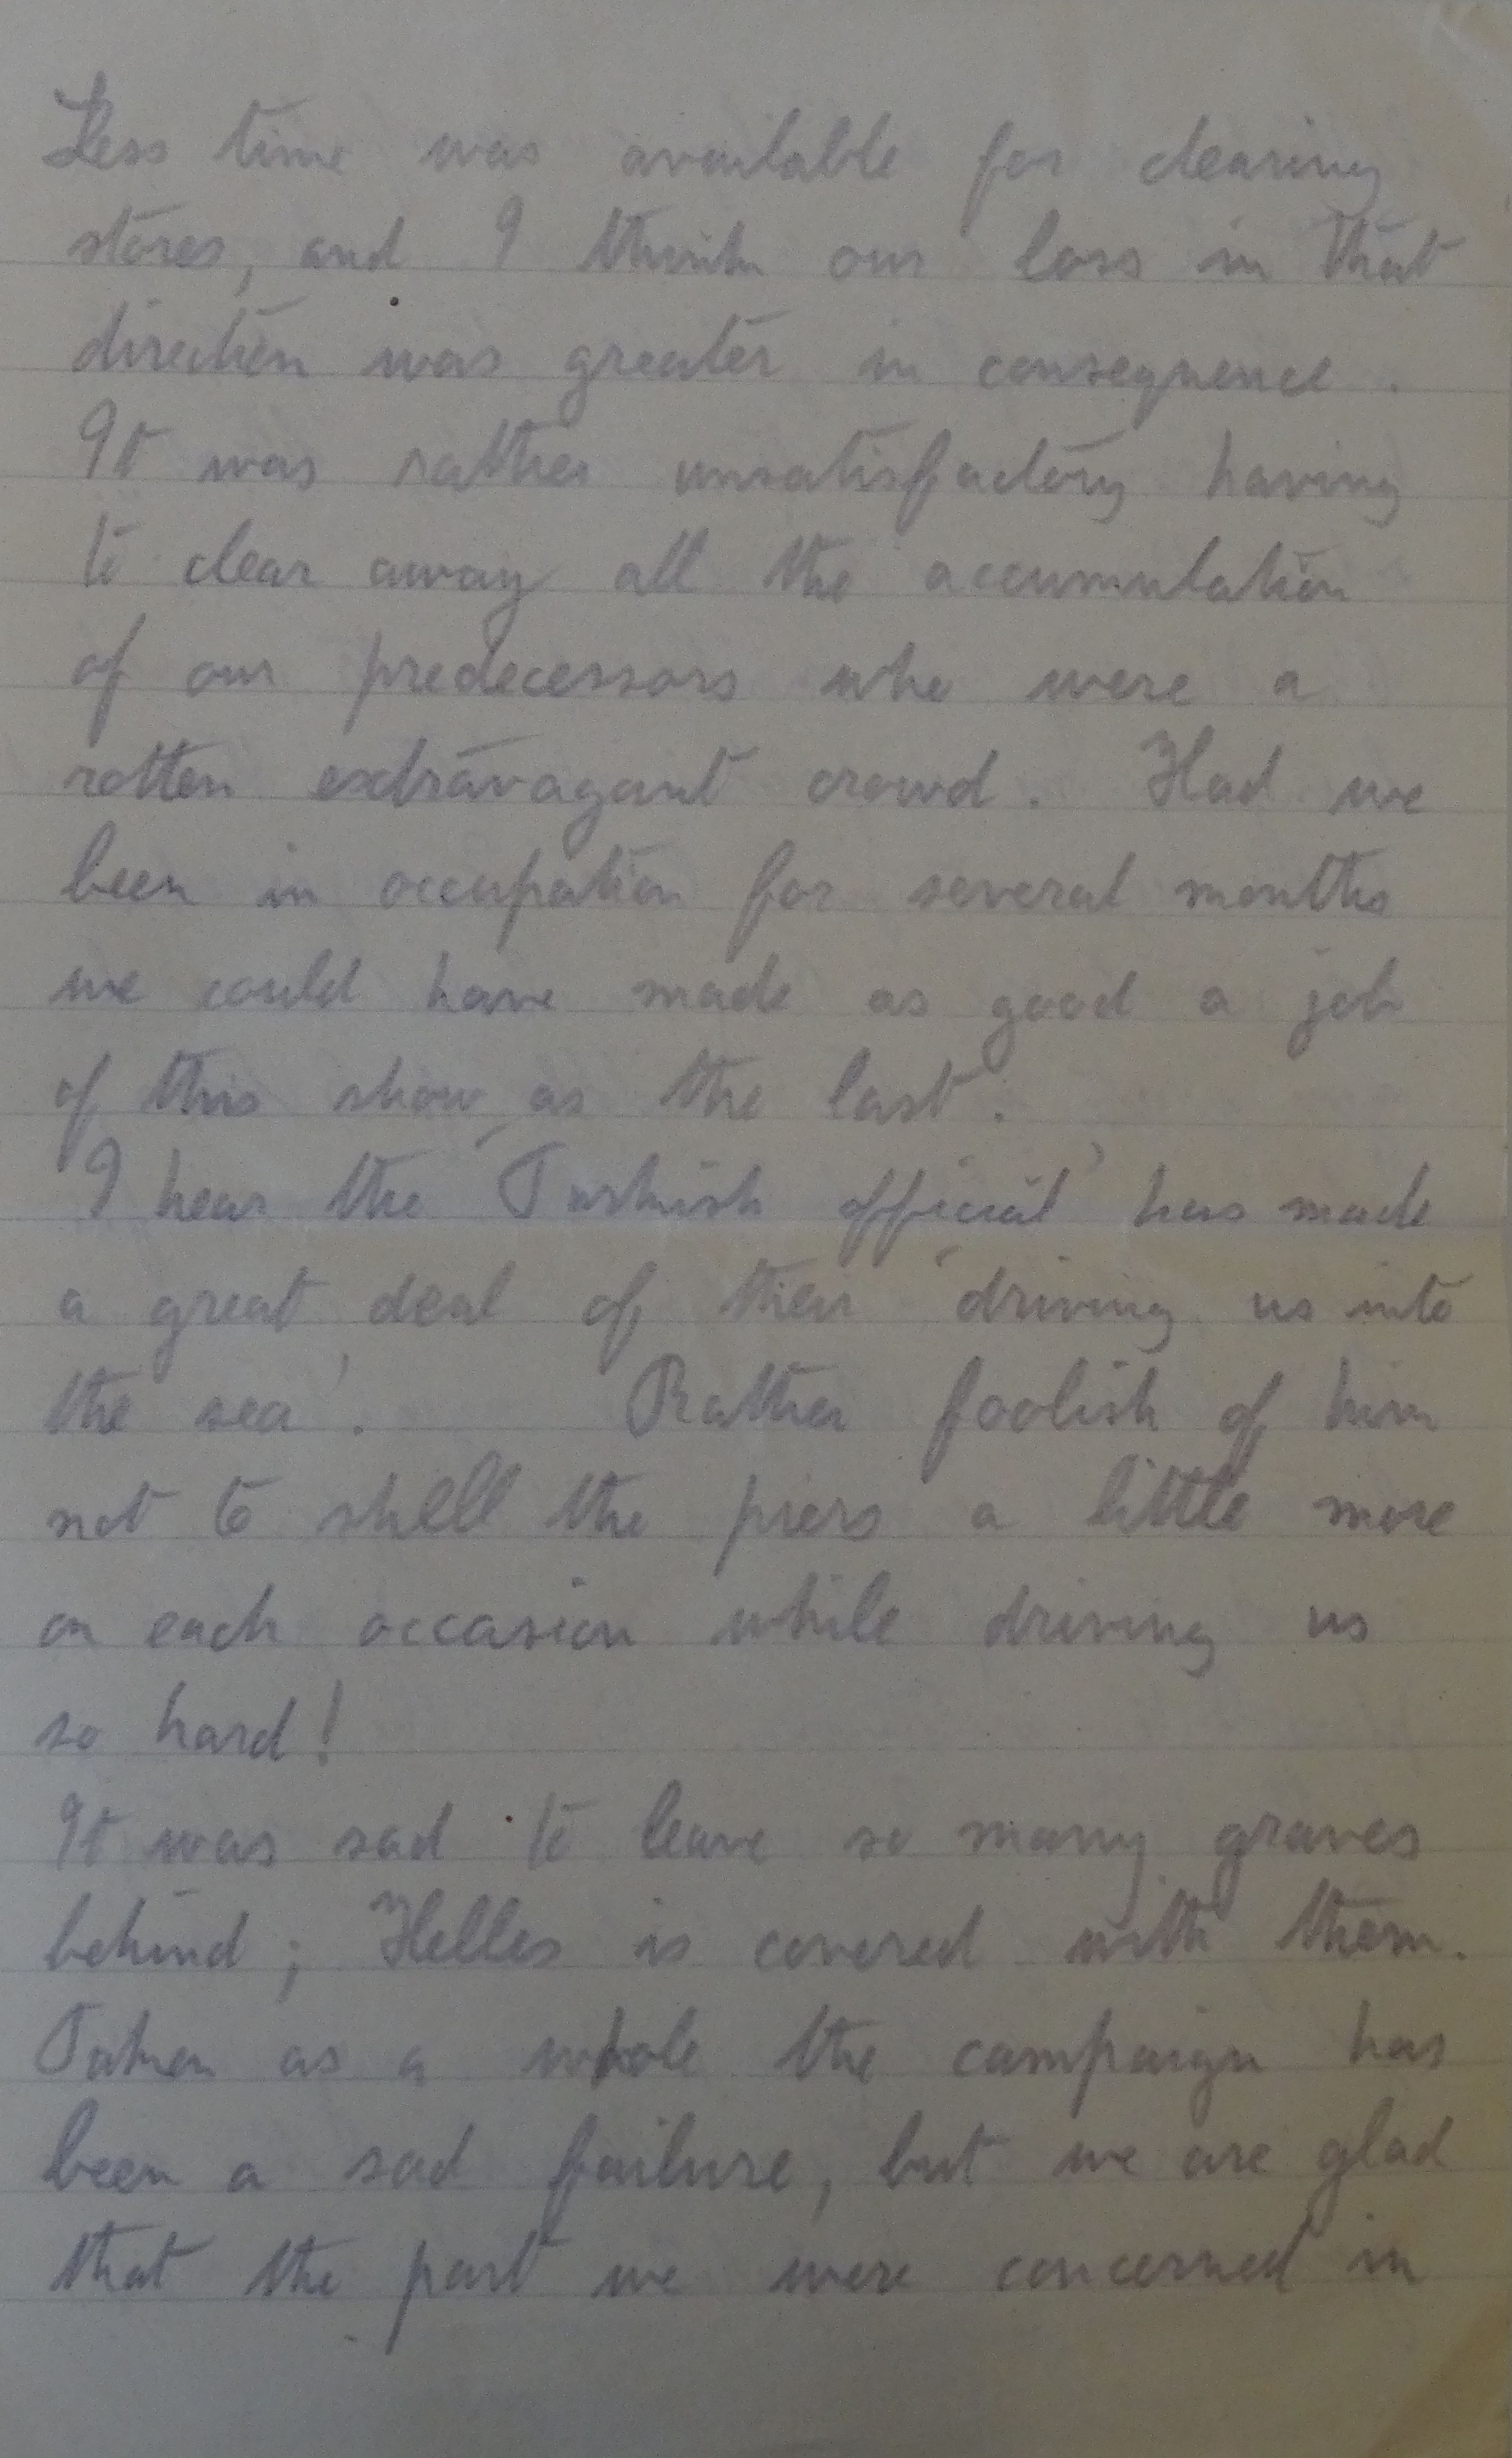 Less time was available for clearing
stores, and I think our loss in that
direction was greater in consequence.
It was rather unsatisfactory having
to clear away all the accumulation
of our predecessors who were a
rotten extravagant crowd. Had we
been in occupation for several months
we could have made as good a job
of this show as the last.
I hear the 'Turkish official' has made
a great deal of their 'driving us into
the sea'. Rather foolish of him
not to shell the piers a little more
on each occasion while driving us
so hard!
It was sad to leave so many graves
behind; Helles is covered with them.
Taken as a whole the campaign has
been a sad failure, but we are glad
that the part we were concerned in